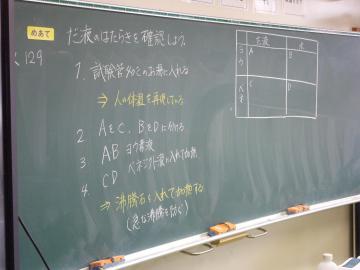 めあて だ液のはたらきを確認しよう。
P.129
1. 試験管を40℃のお湯に入れる
⇒ 人の体温を再現している
2. AとC、BとDに分ける
3. AB ヨウ素液
4. CD ベネジクト液を入れて加熱
⇒ 沸騰石を入れて加熱する
(急な沸騰を防ぐ)
だ液 水
ヨウ A B
ベネ C D